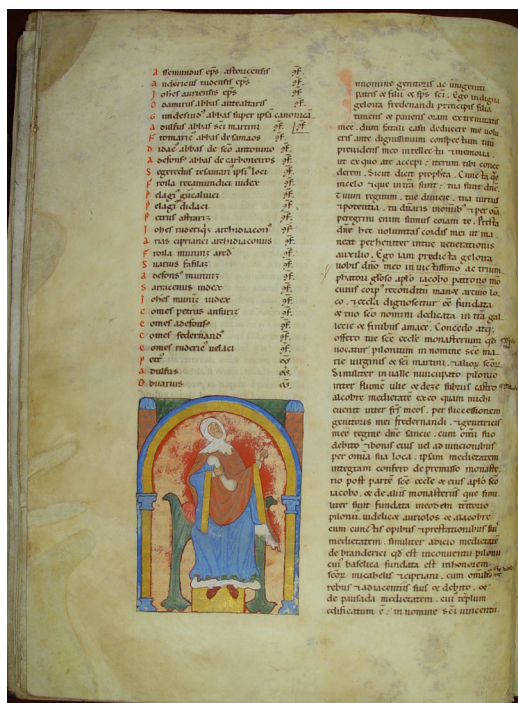 Assemundus eps astoricensis cf.
Andericus tudensis eps cf.
Iohes auriensis eps cf.
Odamirus abbas antealtaris cf.
Gundesind' abbas super ipsa canonica
Adulfus abbas sci martini cf. cf.
Fromaric' abbas de samaos cf.
Didac' abbas de sco antonino cf.
Adefons' abbas de carboneiros cf.
Segeredus tesaurari' ipsi' loci cf.
Froila recamundici iudex cf.
Pelagi' gicaluici cf.
Pelagi' didaci cf.
Petrus astrariz cf.
Iohes ruderiq' archidiacon' cf.
Arias cipriani archidiaconus cf.
Froila muniz ared cf.
Suarius fafilaz cf.
Adefons' muniniz cf.
Sarracenus iudex cf.
Iohes muniz iudex cf.
Comes petrus ansuriz cf.
Comes adefonse cf.
Comes federnand' cf.
Comes ruderic' uelaci cf.
Petr'
Adulfus
Oduarius
Innomine genitoris ac unigeniti
patris & filii & sps sci. Ego indigna
geloira fredenandi principis filia
timens & pauens diem extremitatis
mee. dum fatali casu deducere me uolu
eris ante dignissimum conspectum tuum
preuidens meo intellectu & memoria.
ut ex quo ate accepi: iterum tibi conce
derem. Sicut dicit propheta. Cuncta que
in celo & que in tra sunt: tua sunt dne.
Tuum regnum. tue diuicie. tua uirtus
& potentia. tu dnaris
peregrini enim sumus coram te. Presta
dne hec uoluntas cordis mei ut ma
neat perhenniter intue uenerationis
auxilio. Ego iam predicta geloira
uobis dno meo inuictissimo ac trium
phatori gloso aplo iacobo patrono meo
cuius corp' reconditu manet arcuio lo
co. & eccla dignoscitur ee fundata
& tuo sco nomini dedicata in tra gal
lecie & finibus amaee. Concedo atq;
offero tue sce eccle monasterium qd
uocatur pilonium in nomine sce ma
rie uirginis & sci martini & alior' scor'.
Similiter in ualle nuncupato pilonio
inter flumen ulie & deze subtus castro
alcobre medietate ex eo quam michi
euenit inter frs meos. per successionem
genitoris mei fredernandi. & genitricis
mee regine dne sancie. cum omi suo
debito & bonis eius uel adiuncionibus
per omia sua loca. ipsam medietatem
integram confero de premisso monaste
rio post parte sce eccle & eius apli sco
iacobo. & de aliis monasteriis que simi
liter sunt fundata ineodem tritorio
pilonii. uidelicet auriolos & alacobre
cum cunctis opibus & prestationibus sui'
medietatem. similiter adicio medietate
de branderici qd est inconuentu piloni
cui' baselica fundata est inhonorem
scor' micahelis & cipriani. cum omib'
rebus & adiacentiis suis & debito. &
de pausada medietatem. cui' templum
edificatum e: in nomine sci uincentii.